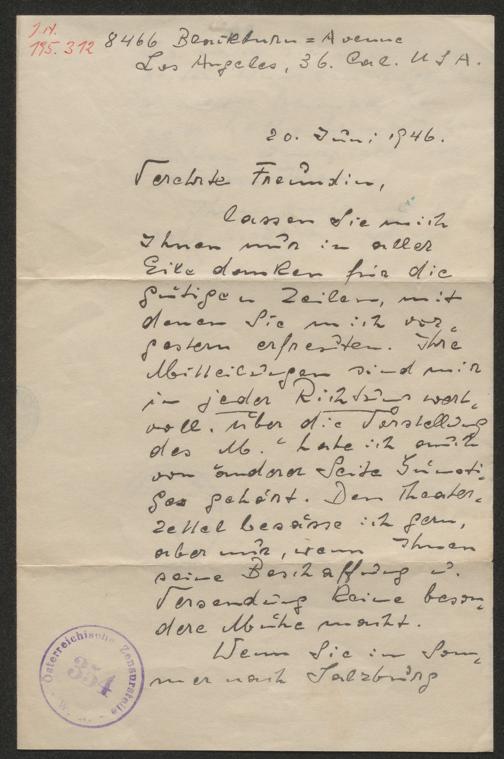 J.N.
195.312
8466 Avenue
Los Angeles, 36. Cal. USA.
20. Juni 1946.
Verehrte Freundin,
lassen Sie mich
Ihnen nur in aller
Eile danken für die
gütigen Zeilen, mit
denen Sie mich vor-
gestern erfreuten. Ihre
Mitteilungen sind mir
in jeder Richtung wert-
voll. Über die Vorstellung
des M." hatte ich auch
von anderer Seite Günsti-
ges gehört. Den Theater-
zettel besässe ich gern,
aber nur, wenn Ihnen
seine Beschaffung u.
Versendung keine beson-
dere Mühe macht.
Wenn Sie im Som-
mer nach Salzburg
Österreichische Zensurstelle
354
W